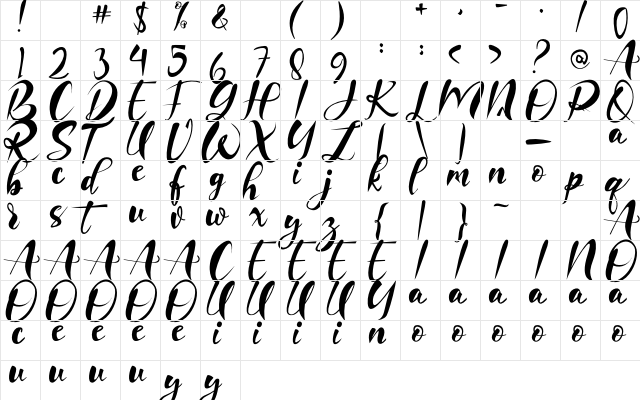 ! # $ % & ( ) + , - . / 0
1 2 3 4 5 6 7 8 9 : : < > ? @ A
B C D E F G H I J K L M N O P Q
R S T U V W X Y Z [ \ ] — a
b c d e f g h i j k l m n o p q
r s t u v w x y z { | } ~ A
A A A A A C E E E E I I I I N O
O O O O O U U U U Y a a a a a a
c e e e e i i i i n o o o o o o
u u u u y y